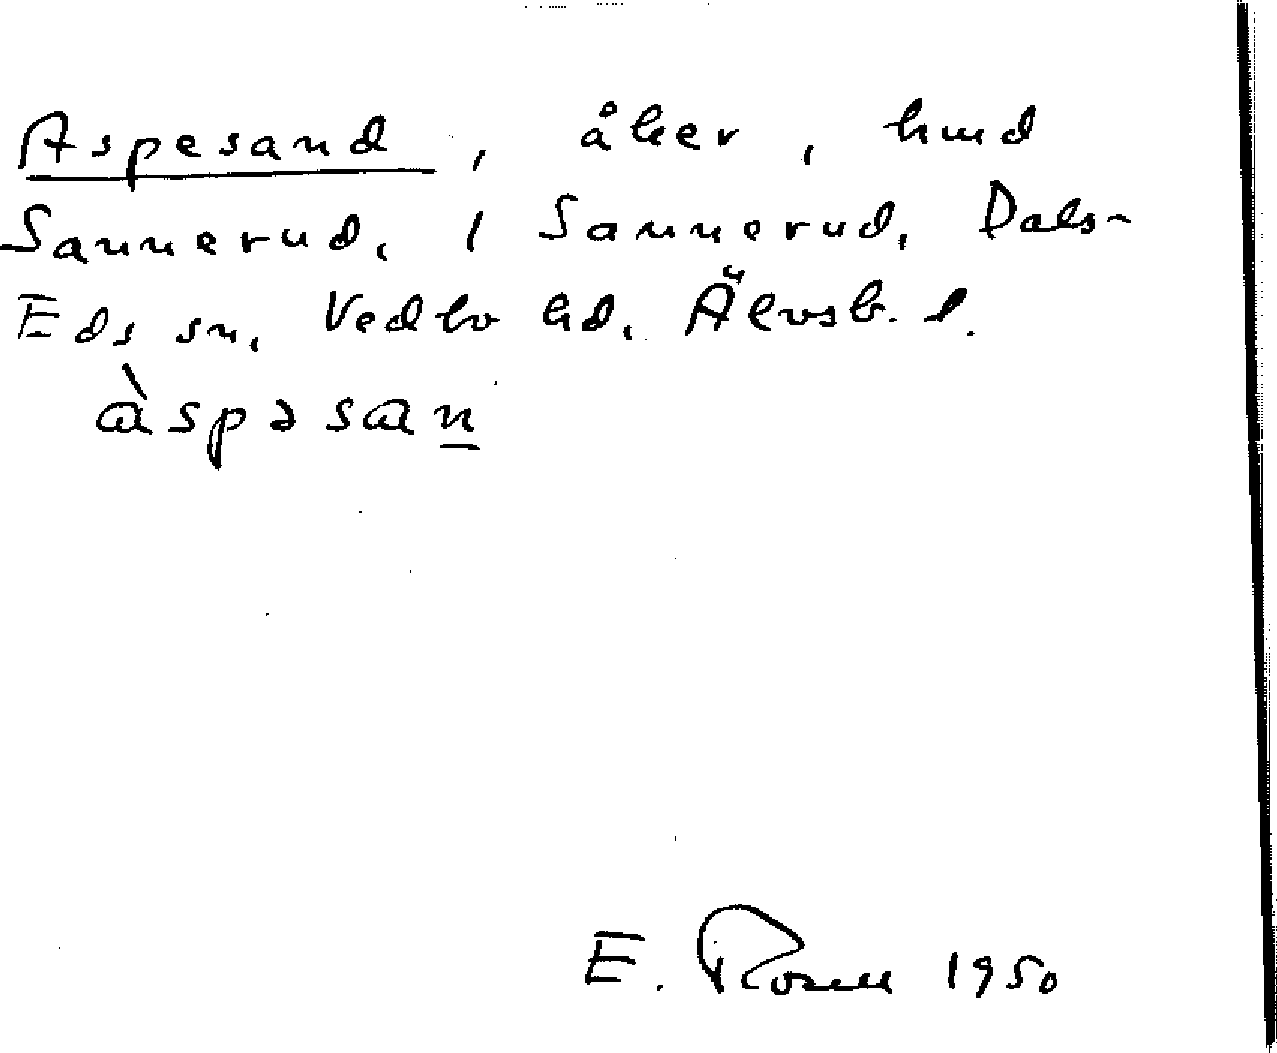 Aspesand, åker, hmd
Sannerud, 1 Sannerud, Dals-
Eds sn, Vedbo hd, Älvsb. l.
àspəsan
E. Rosell 1950